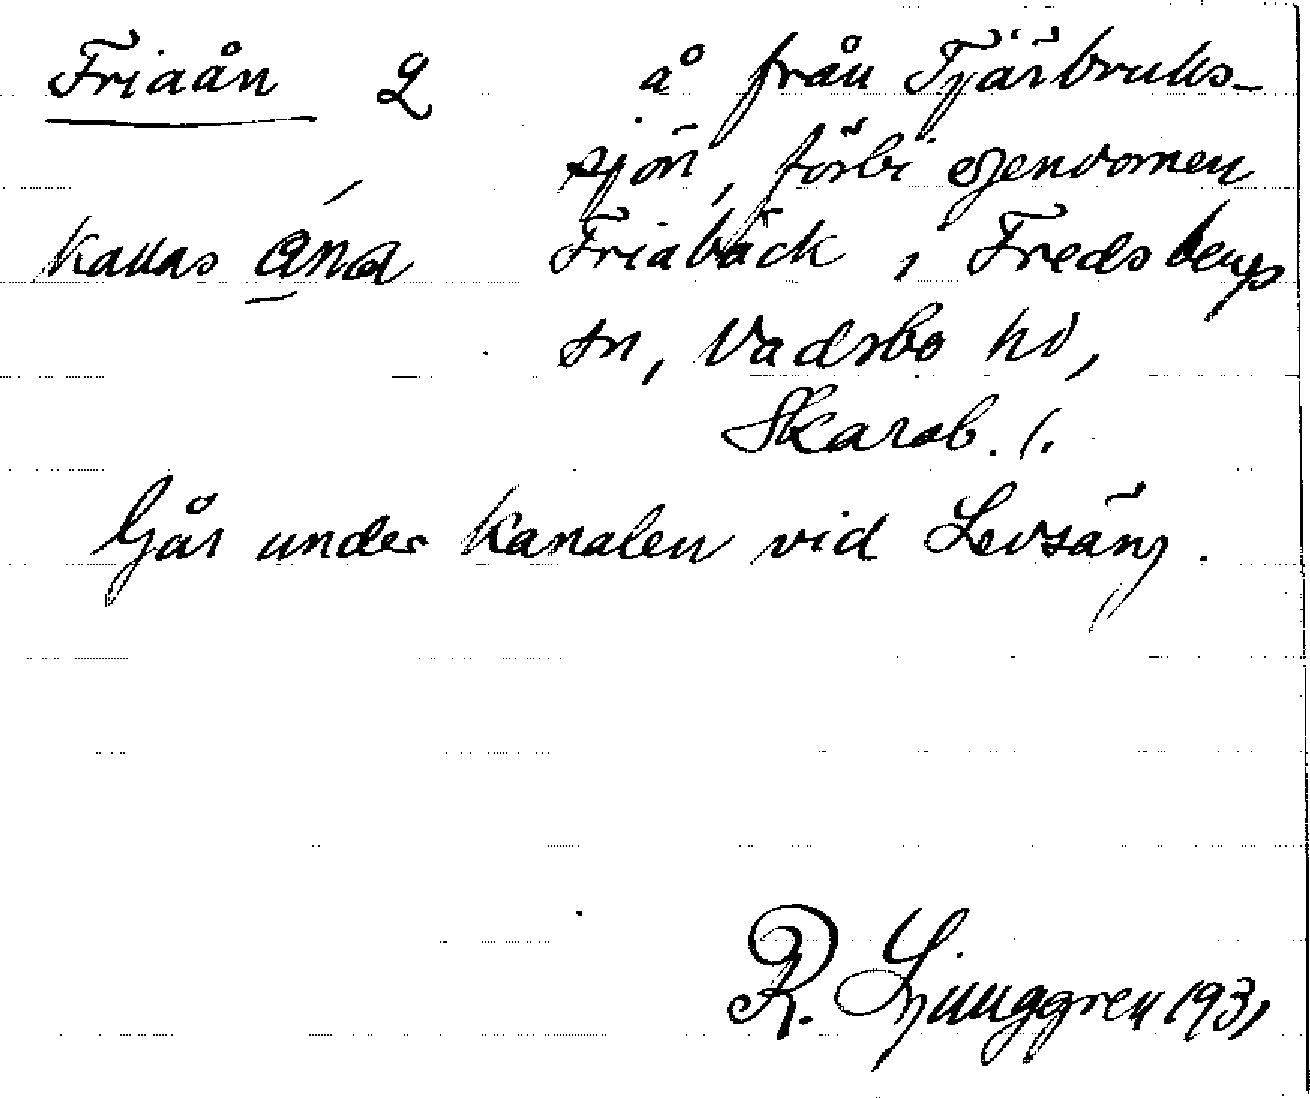 Friaån 2 å från Tjärbruks-
sjön, förbi egendomen
kallas ána Friabäck i Fredsbergs
sn, Vadsbo hd,
Skarab. l.
Går under kanalen vid Levsäng.
R. Ljunggren 1931